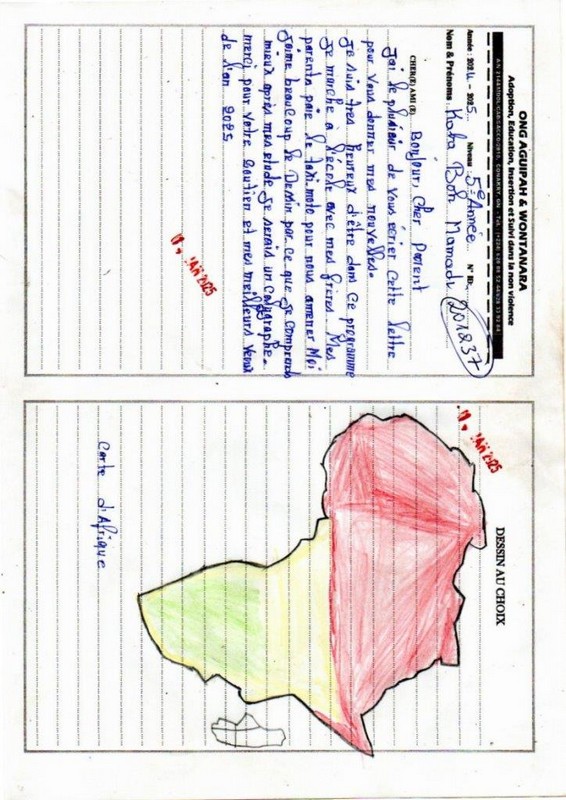 ONG AGUIPAH & WONTANARA
Adoption, Education, Insertion et Suivi dans la non violence
Année : 2024 - 2025 Niveau : 5e Année N° ID: 201237
Nom & Prénoms : Kaba Boh Mamadi
CHER(E) AMI (E) Bonjour, cher parent
J'ai le plaisir de vous écrier cette lettre
pour vous donner mes nouvelles.
Je suis très heureux d'être dans ce programme
je marche à l'école avec mes frères. Mes
parents paie le taxi-moto pour nous amener Moi
j'aime beaucoup le Dessin par ce que je comprends
mieux après mes etude je serais un
merci pour votre Soutien et mes meilleurs
de l'an 2025
JAN 2025
DESSIN AU CHOIX
JAN 2025
Carte d'Afrique